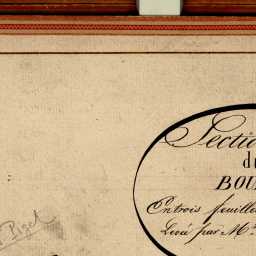 Section
du
BOU
En trois feuilles
Levée par Mr.
Pizel